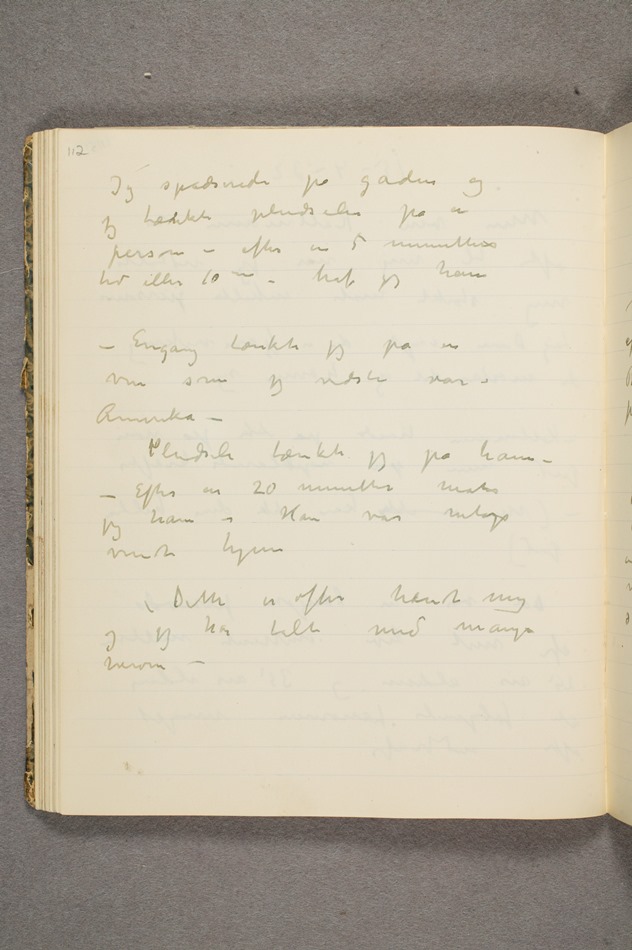 112
Jeg spadserede på gaden og
jeg tænkte pludselig på en
person – efter en 5 minutters
tid eller 10 – traf jeg ham
– Engang tænkte jeg på en
ven som jeg vidste var i
Amerika –
Pludseli tænkte jeg på ham –
– Efter en 20 minutter mødte
jeg ham – Han var netop
vendt hjem
( Dette er ofte hændt mig
og jeg har talt med mange
herom –